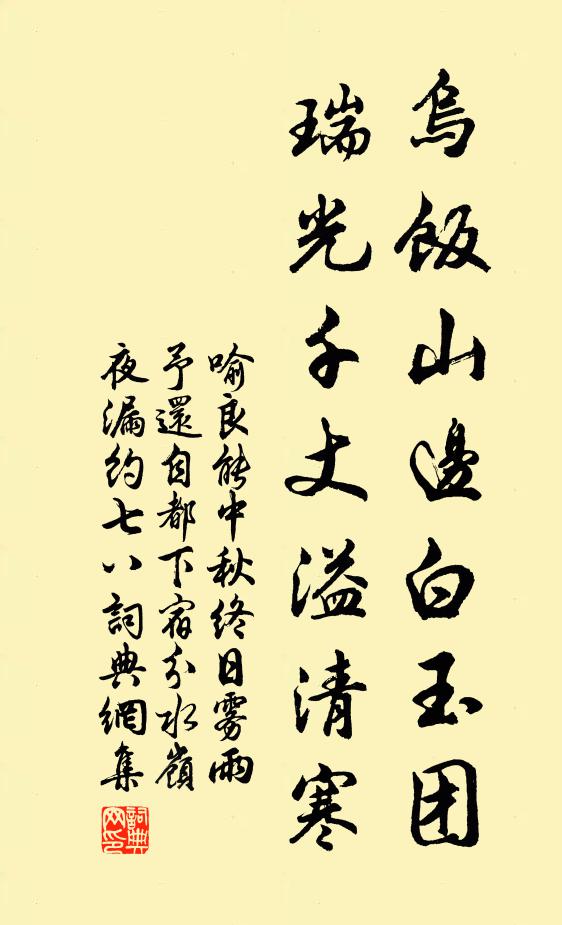 烏飯山邊白玉团
瑞光千丈溢清寒
喻良能中秋終日雾雨
予還自都下宿分水嶺
夜漏約七八詞典網集
詞典网印